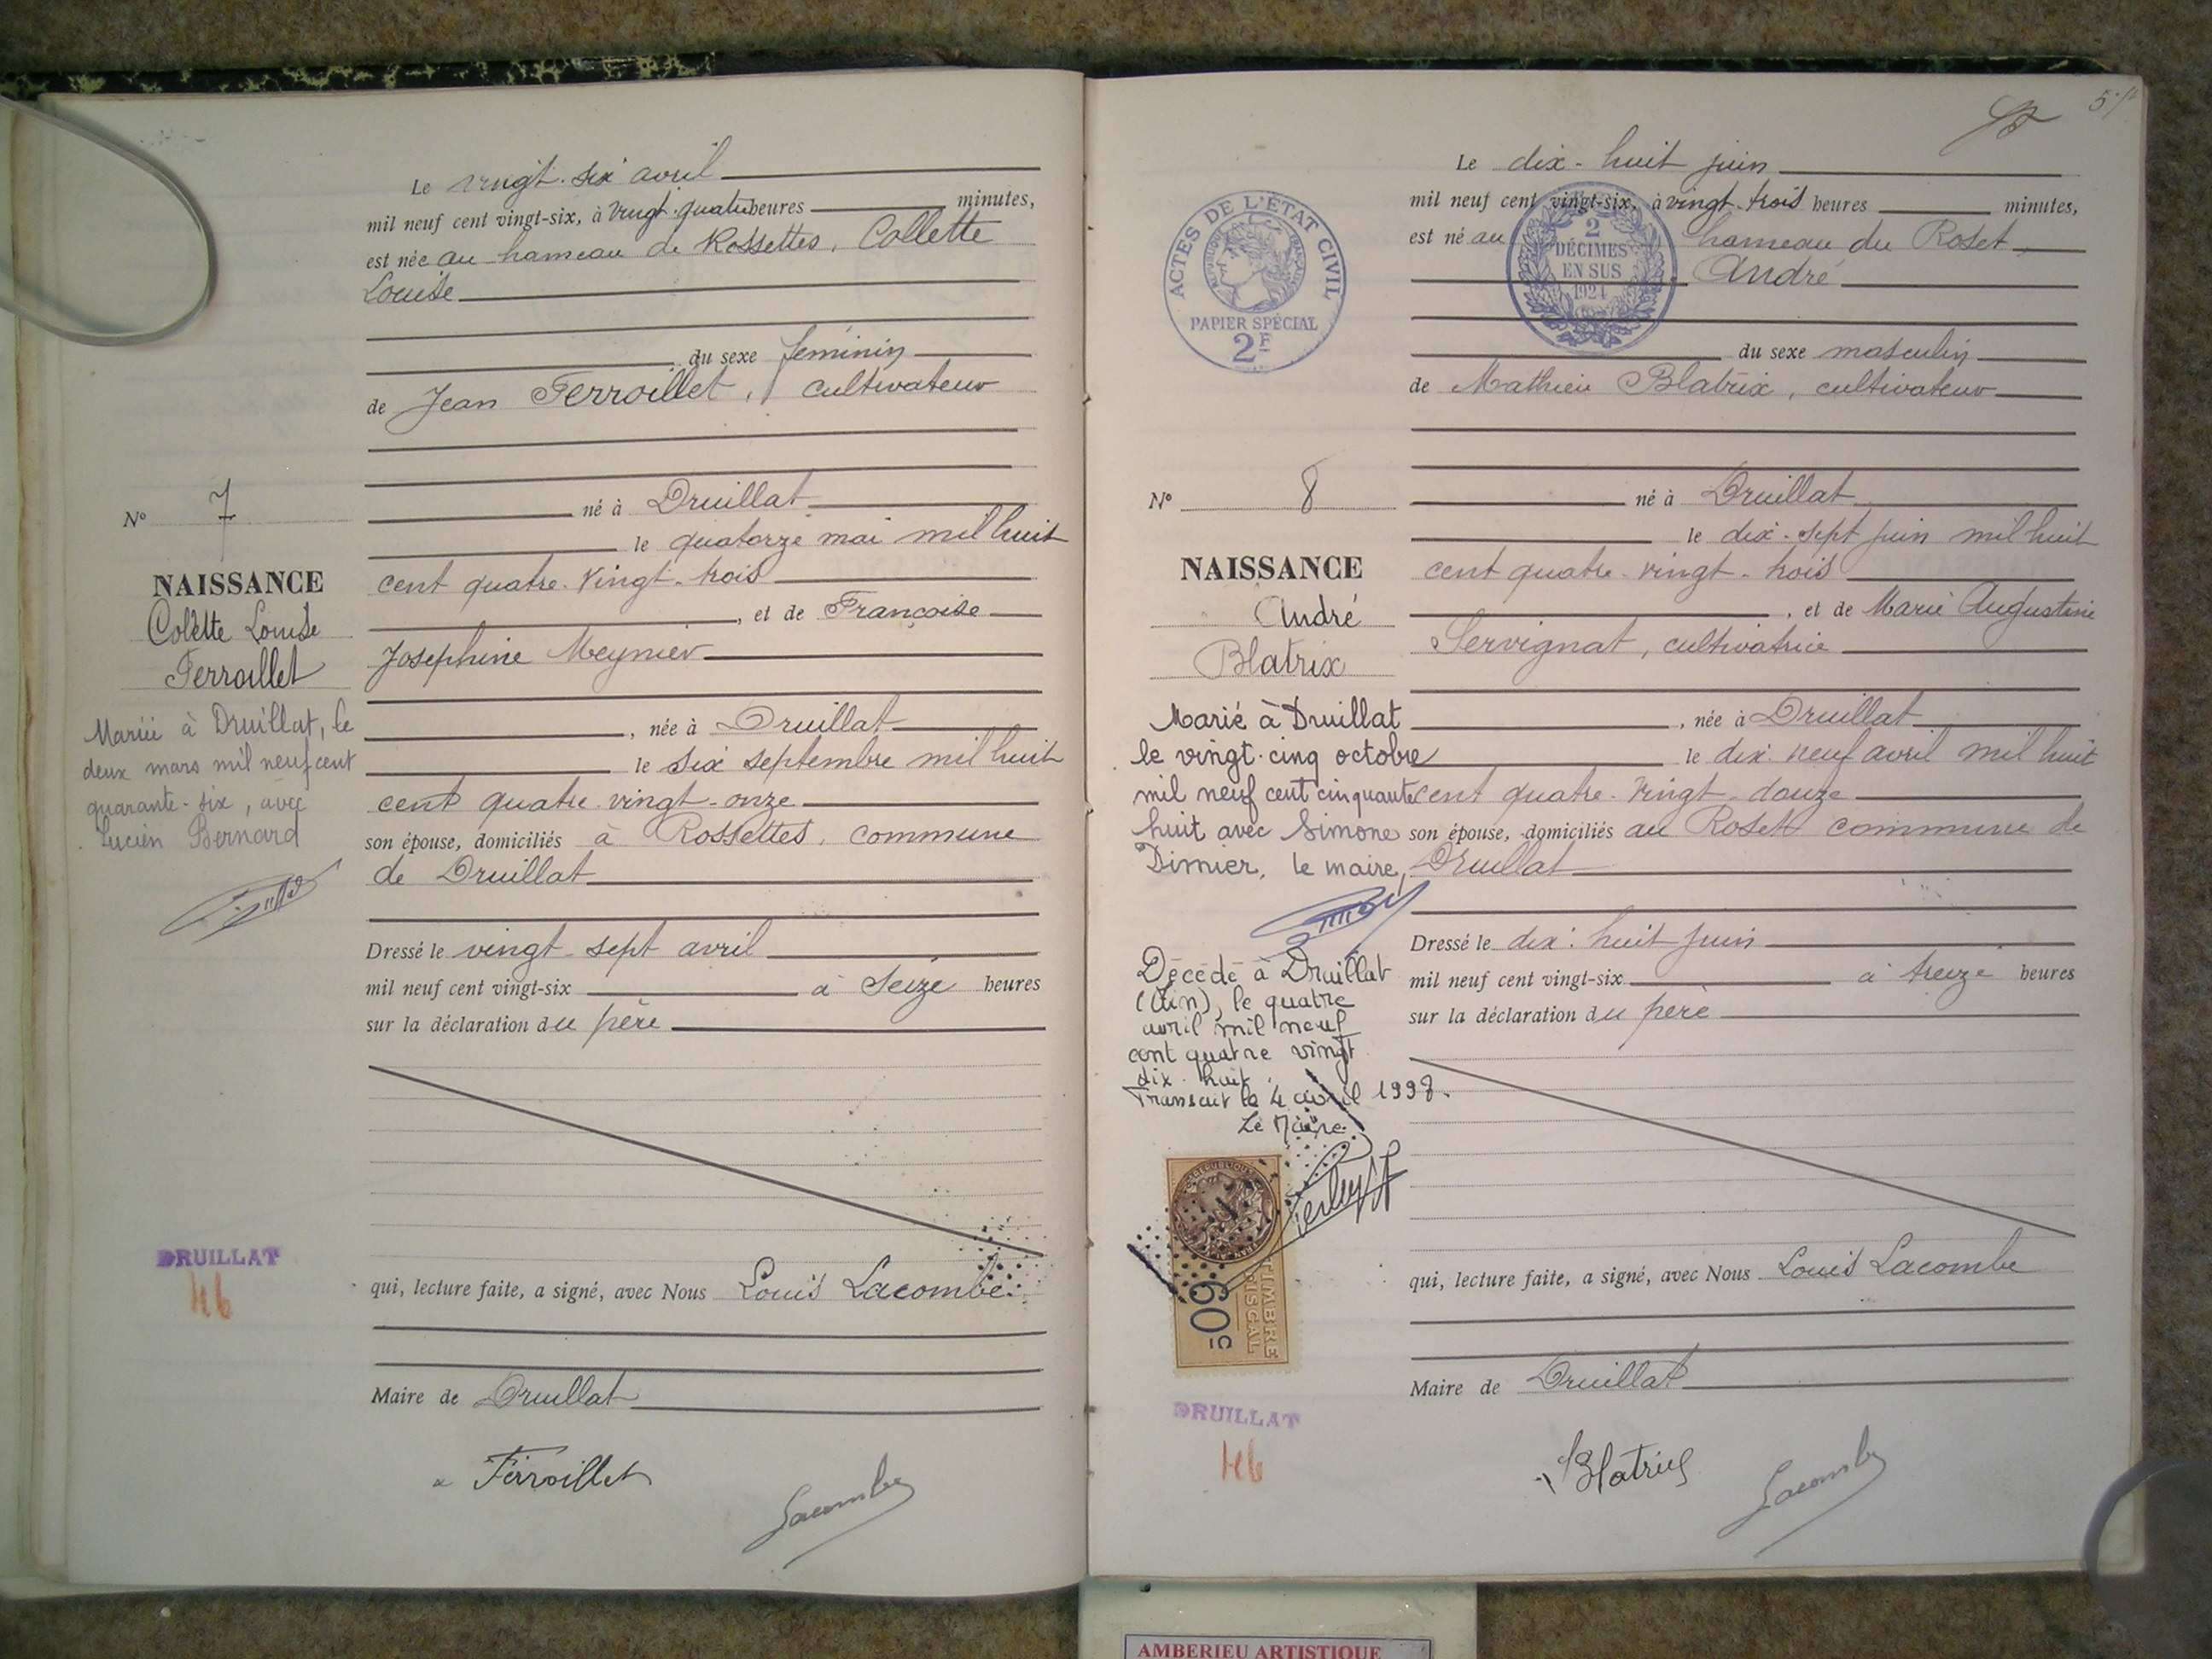 Le vingt-six avril
mil neuf cent vingt-six, à vingt-quatre heures minutes,
est née au hameau de Rossettes, Collette
Louise
du sexe féminin
de Jean Ferroillet, cultivateur
né à Druillat
le quatorze mai mil huit
cent quatre-vingt-trois
, et de Françoise
Joséphine Meynier
, née à Druillat
le six septembre mil huit
cent quatre-vingt-onze
son épouse, domiciliés à Rossettes, commune
de Druillat
Dressé le vingt-sept avril
mil neuf cent vingt-six à seize heures
sur la déclaration du père
qui, lecture faite, a signé, avec Nous Louis Lacombe
Maire de Druillat
Ferroillet
Lacombe
N° 7
NAISSANCE
Colette Louise
Ferroillet
Mariée à Druillat, le
deux mars mil neuf cent
quarante-six, avec
Lucien Bernard
DRUILLAT
46
Le dix-huit juin
mil neuf cent vingt-six, à vingt-trois heures minutes,
est né au hameau du Roset,
André
du sexe masculin
de Mathieu Blatrix, cultivateur
né à Druillat
le dix-sept juin mil huit
cent quatre-vingt-trois
, et de Marie Augustine
Servignat, cultivatrice
, née à Druillat
le dix-neuf avril mil huit
cent quatre-vingt-douze
son épouse, domiciliés au Roset commune de
Druillat
Dressé le dix-huit juin
mil neuf cent vingt-six à treize heures
sur la déclaration du père
qui, lecture faite, a signé, avec Nous Louis Lacombe
Maire de Druillat
Blatrix
Lacombe
ACTES DE L'ÉTAT CIVIL
RÉPUBLIQUE FRANÇAISE
PAPIER SPÉCIAL
2F
2
DÉCIMES
EN SUS
1924
N° 8
NAISSANCE
André
Blatrix
Marié à Druillat
le vingt-cinq octobre
mil neuf cent cinquante
huit avec Simone
Dimier, le maire,
Décédé à Druillat
(Ain), le quatre
avril mil neuf
cent quatre vingt
dix-huit.
Transcrit le 4 avril 1998.
Le Maire
TIMBRE
FISCAL
60c
DRUILLAT
46
AMBERIEU ARTISTIQUE